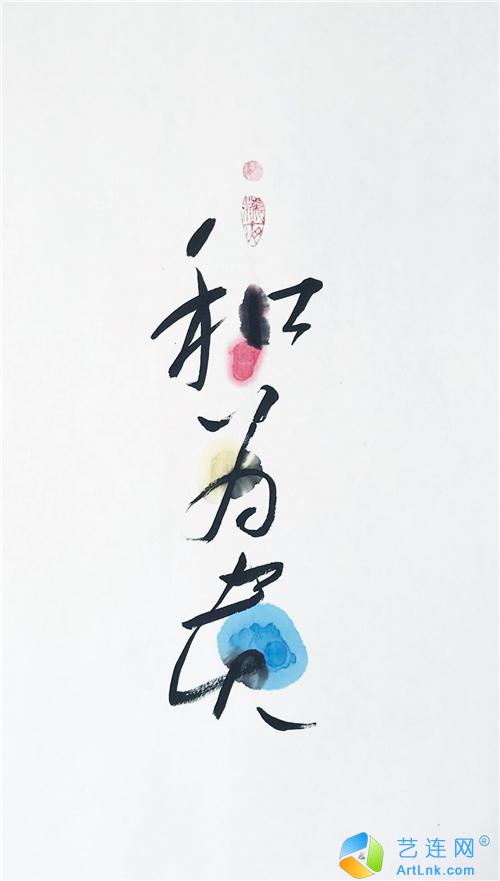 和为贵
艺连网®
ArtLnk.com